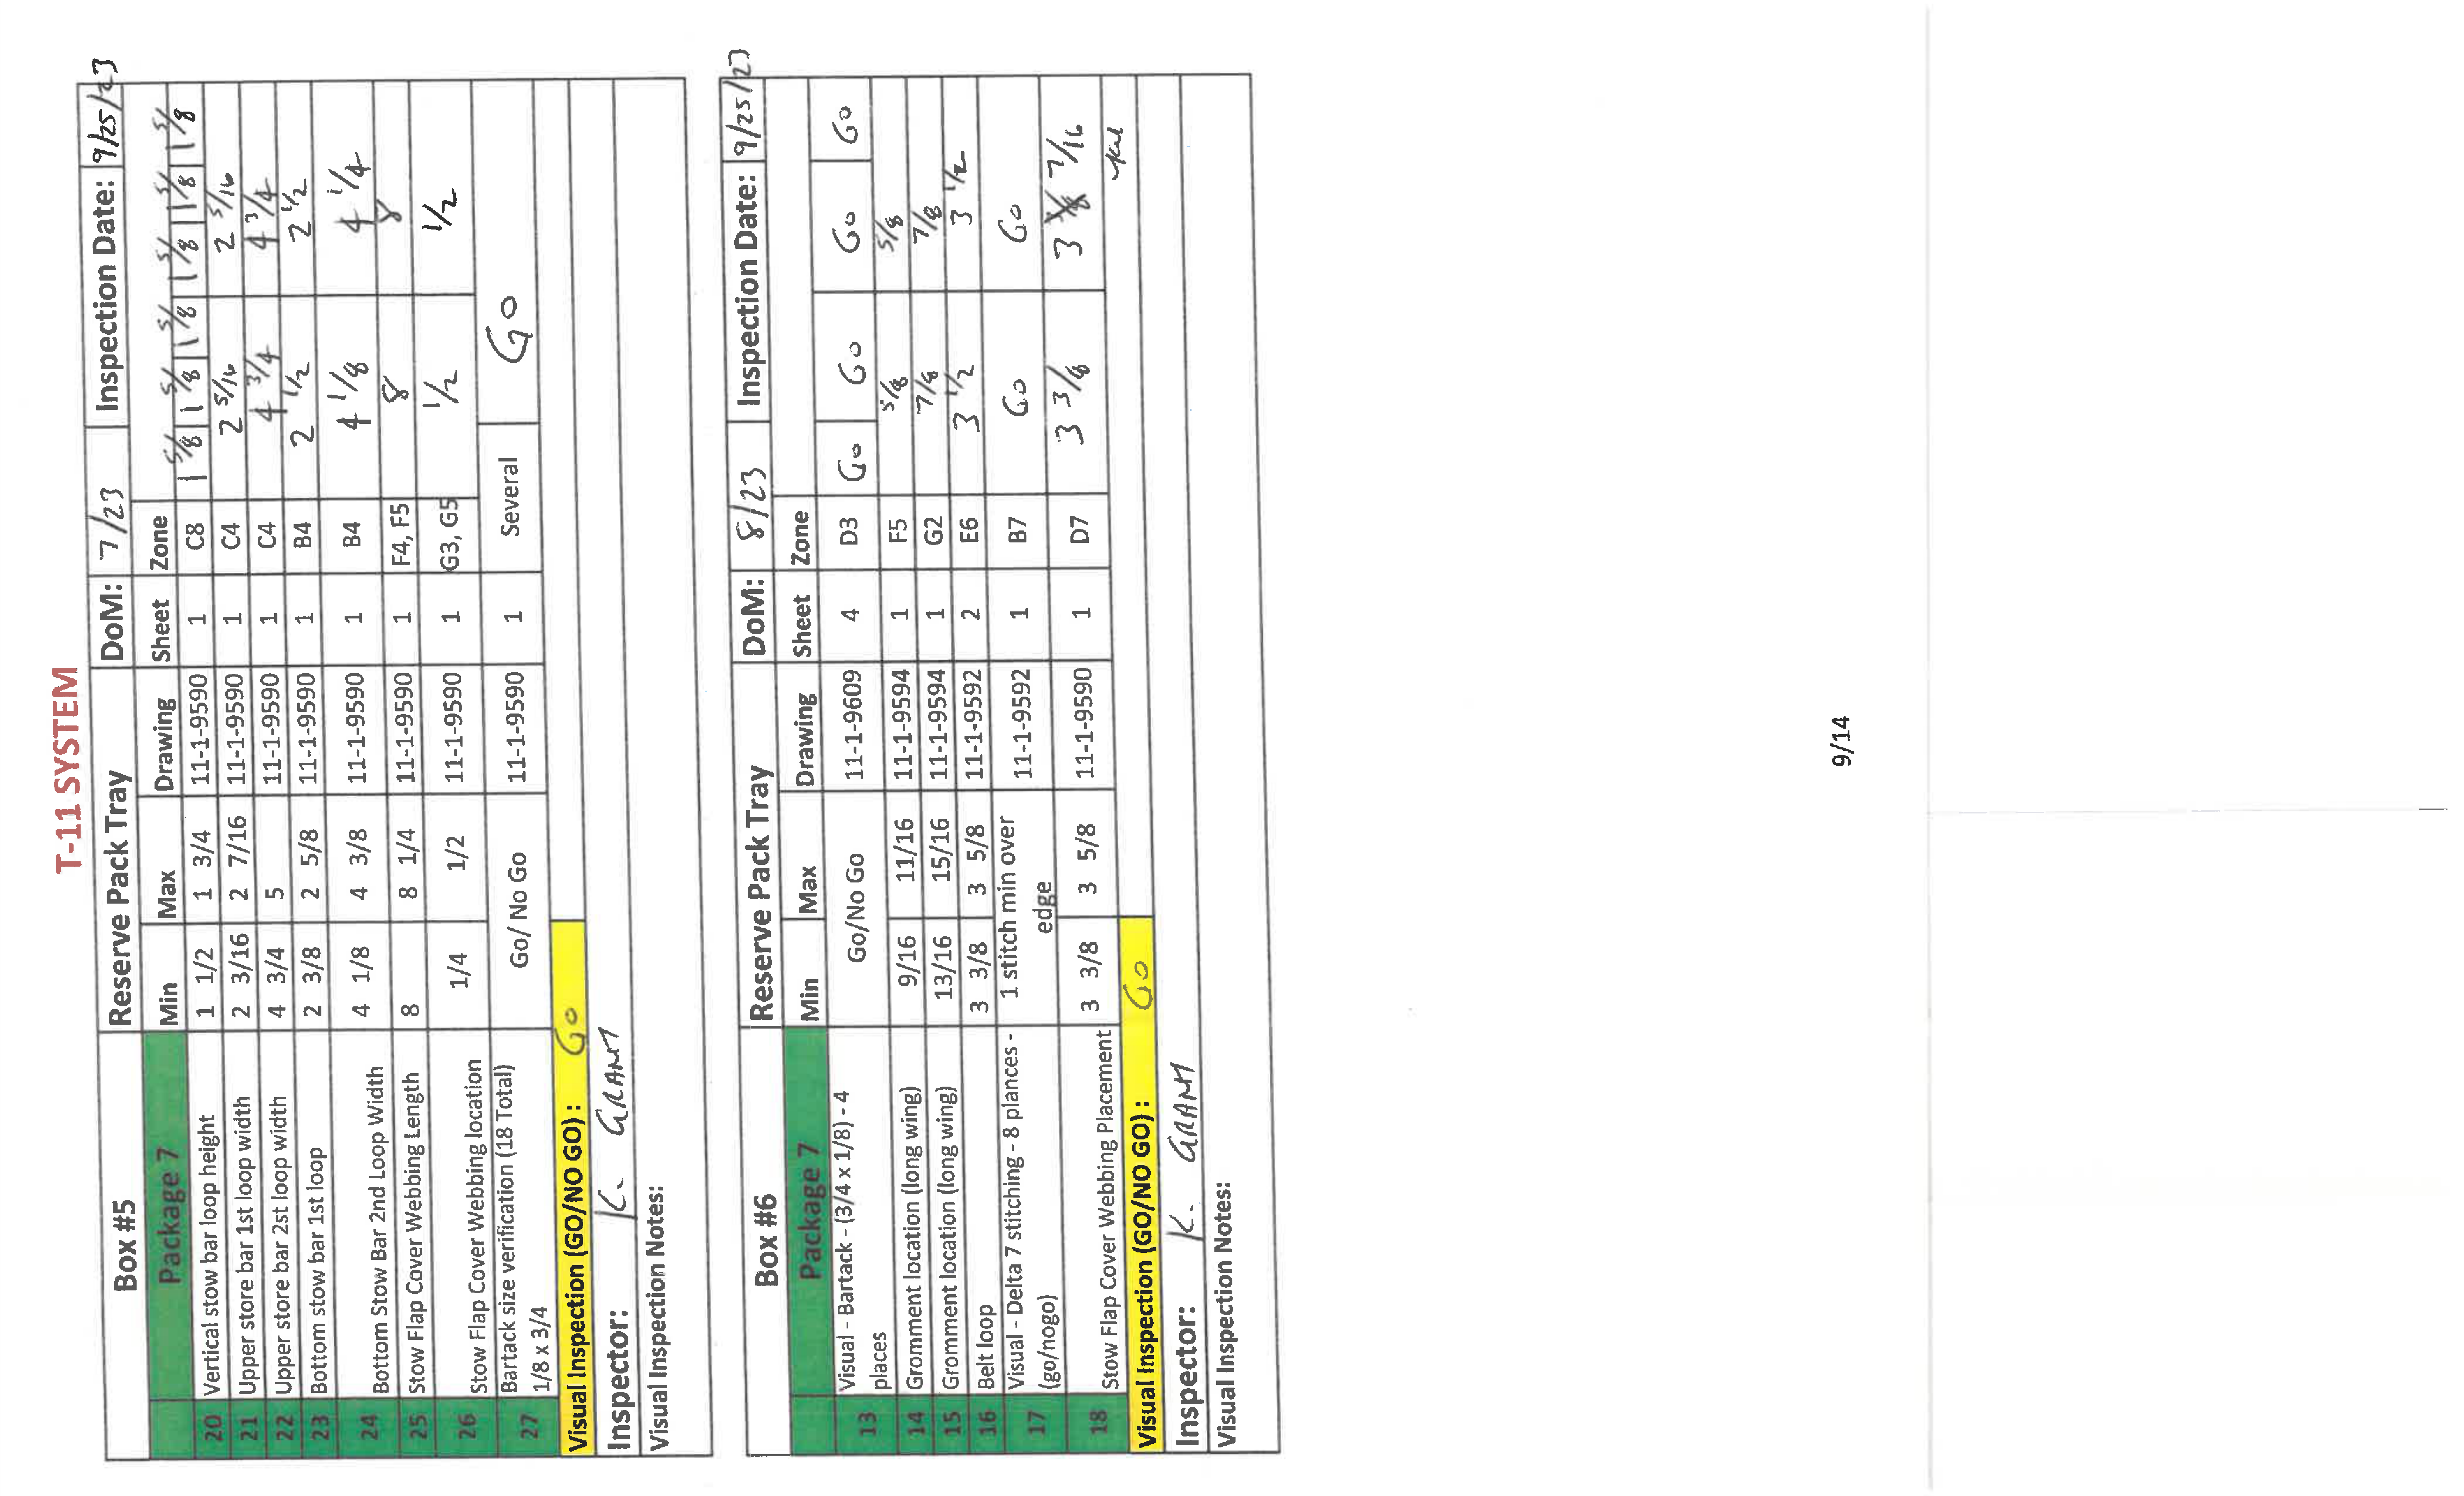 T-11 SYSTEM
Box #5 Reserve Pack Tray DoM: 7/23 Inspection Date: 9/25/23
Package 7 Min Max Drawing Sheet Zone
20 Vertical stow bar loop height 1 1/2 1 3/4 11-1-9590 1 C8 1 5/8 1 5/8 1 5/8 1 5/8 1 5/8 1 5/8
21 Upper store bar 1st loop width 2 3/16 2 7/16 11-1-9590 1 C4 2 5/16 2 5/16
22 Upper store bar 2st loop width 4 3/4 5 11-1-9590 1 C4 4 3/4 4 3/4
23 Bottom stow bar 1st loop 2 3/8 2 5/8 11-1-9590 1 B4 2 1/2 2 1/2
24 Bottom Stow Bar 2nd Loop Width 4 1/8 4 3/8 11-1-9590 1 B4 4 1/8 4 1/4
25 Stow Flap Cover Webbing Length 8 8 1/4 11-1-9590 1 F4, F5 8 8
26 Stow Flap Cover Webbing location 1/4 1/2 11-1-9590 1 G3, G5 1/2 1/2
27 Bartack size verification (18 Total)
1/8 x 3/4 Go/ No Go 11-1-9590 1 Several Go
Visual Inspection (GO/NO GO) : Go
Inspector: K. GRANT
Visual Inspection Notes:
Box #6 Reserve Pack Tray DoM: 8/23 Inspection Date: 9/25/23
Package 7 Min Max Drawing Sheet Zone
13 Visual - Bartack - (3/4 x 1/8) - 4
places Go/No Go 11-1-9609 4 D3 Go Go Go Go
14 Gromment location (long wing) 9/16 11/16 11-1-9594 1 F5 5/8 5/8
15 Gromment location (long wing) 13/16 15/16 11-1-9594 1 G2 7/8 7/8
16 Belt loop 3 3/8 3 5/8 11-1-9592 2 E6 3 1/2 3 1/2
17 Visual - Delta 7 stitching - 8 plances - 1 stitch min over
(go/nogo) edge 11-1-9592 1 B7 Go Go
18 Stow Flap Cover Webbing Placement 3 3/8 3 5/8 11-1-9590 1 D7 3 3/8 3 7/16
Visual Inspection (GO/NO GO) : Go
Inspector: K. GRANT
Visual Inspection Notes:
9/14